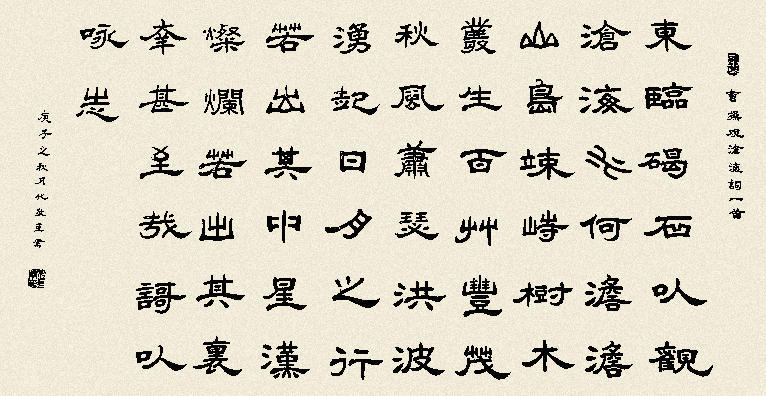 曹操觀滄海詞一首
東臨碣石以觀
滄海水何澹澹
山島竦峙樹木
叢生百艸豐茂
秋風蕭瑟洪波
湧起日月之行
若出其中星漢
燦爛若出其裏
幸甚至哉謌以
咏志
庚子之秋月